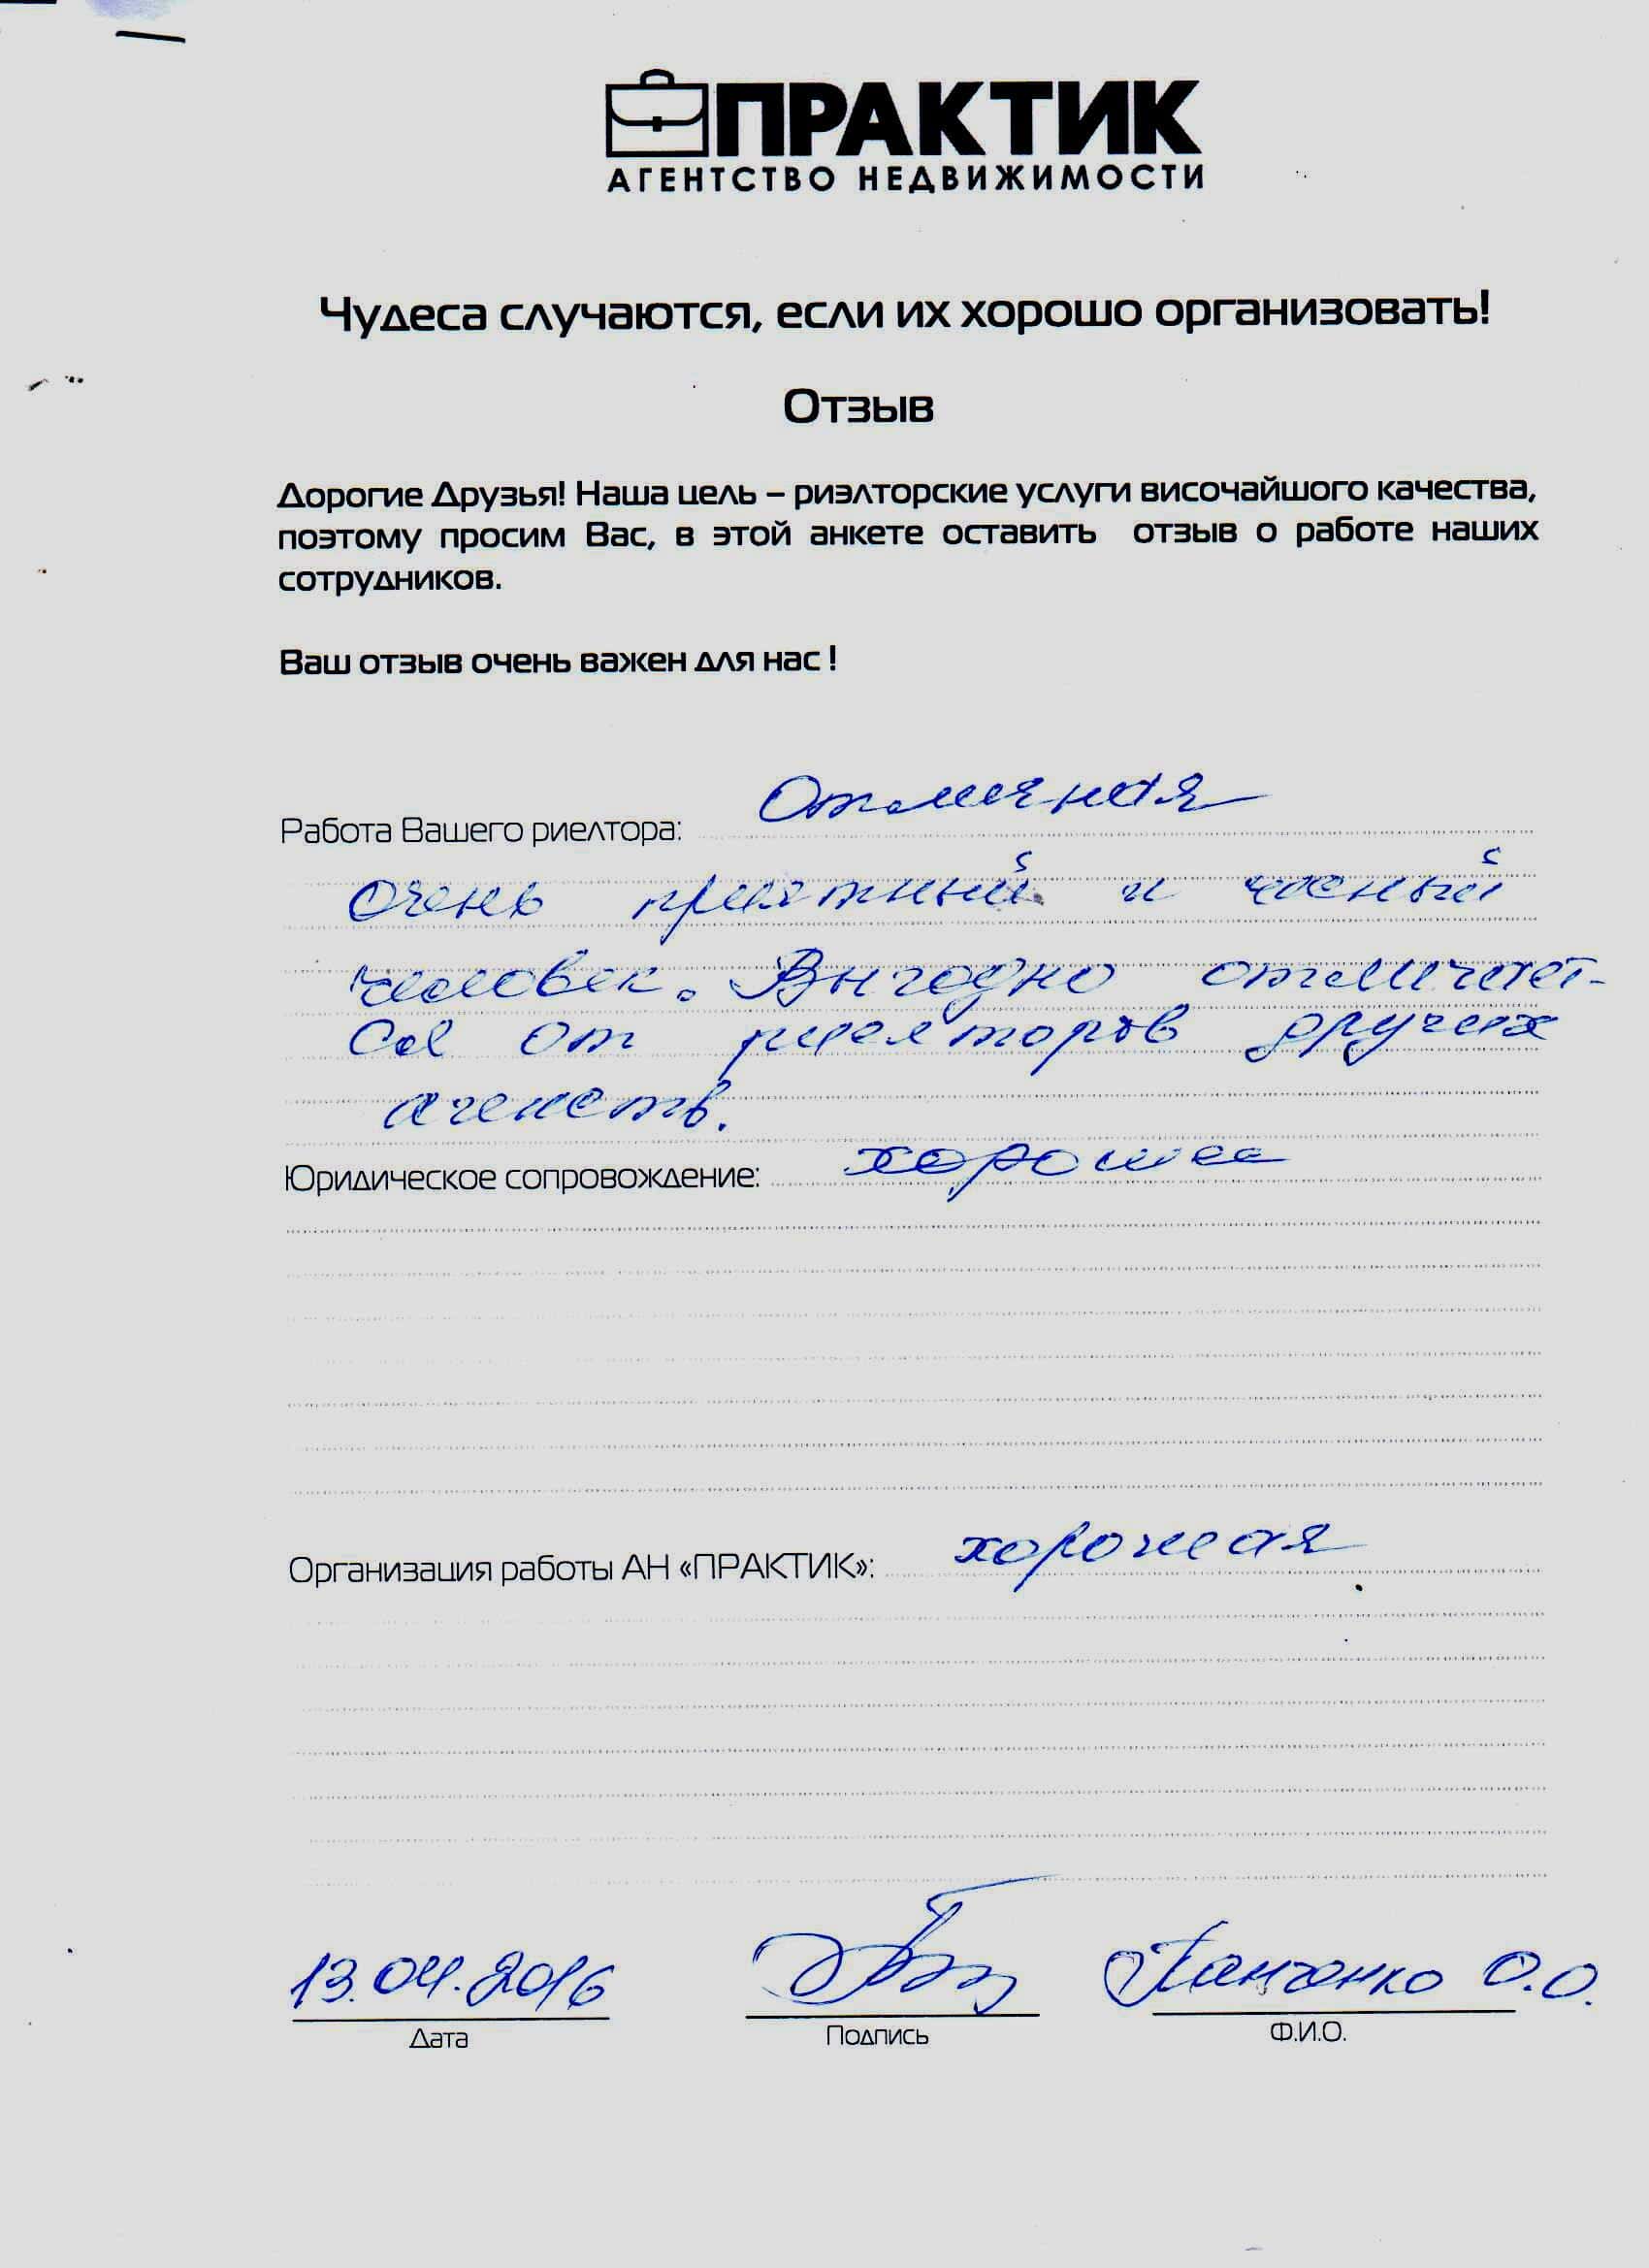 ПРАКТИК
АГЕНТСТВО НЕДВИЖИМОСТИ
Чудеса случаются, если их хорошо организовать!
Отзыв
Дорогие Друзья! Наша цель – риэлторские услуги височайшого качества,
поэтому просим Вас, в этой анкете оставить отзыв о работе наших
сотрудников.
Ваш отзыв очень важен для нас !
Работа Вашего риелтора: Отличная
очень приятный и
человек. Выгодно отличает-
ся от риелторов других
агенств.
Юридическое сопровождение: хорошее
Организация работы АН «ПРАКТИК»: хорошая
13.04.2016 Панченко О.О.
Дата Подпись Ф.И.О.